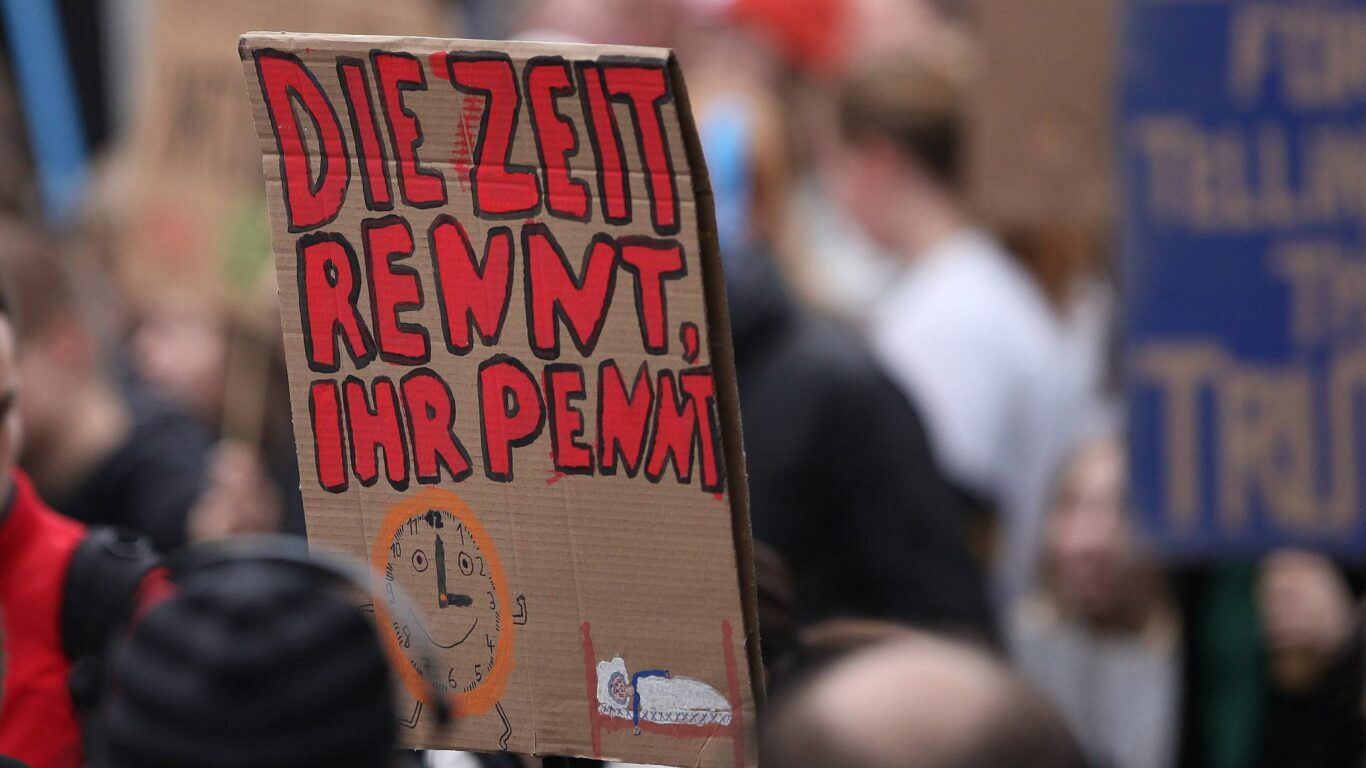 DIE ZEIT
RENNT,
IHR PENNT
11 12 1
10 2
3
8 4
7 6 5
FOR
TELLIN
THE
TRU